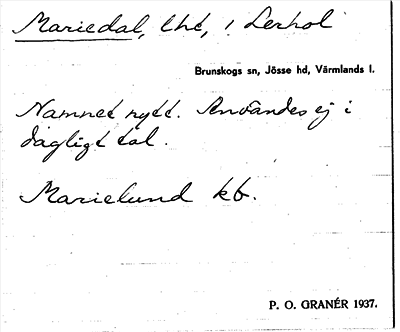 Mariedal, lht, i Lerhol
Brunskogs sn, Jösse hd, Värmlands l.
Namnet nytt. Användes ej i
dagligt tal.
Marielund kb.
P. O. GRANÉR 1937.